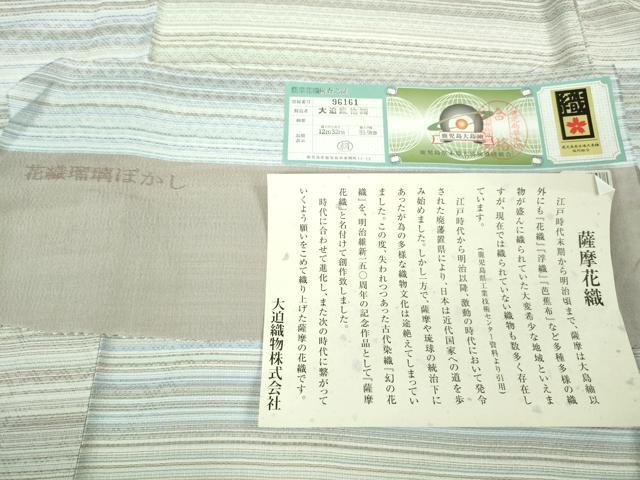 農業花織検査之証
96161
大迫
12m32cm
鹿児島大島紬
織
花織瑠璃ぼかし
薩摩花織
江戸時代末期から明治頃まで、薩摩は大島紬以
外にも『花織』『浮織』『芭蕉布』など多種多様の織
物が盛んに織られていた大変希少な地域といえま
すが、現在では織られていない織物も数多く存在し
ています。
(鹿児島県工業技術センター資料より引用)
江戸時代から明治以降、激動の時代において発令
された廃藩置県により、日本は近代国家への道を歩
み始めました。しかし一方で、薩摩や琉球の統治下に
あったが為の多様な織物文化は途絶えてしまってい
ました。この度、失われつつあった古代染織『幻の花
織』を、明治維新一五〇周年の記念作品として『薩摩
花織』と名付けて創作致しました。
時代に合わせて進化し、また次の時代に繋がって
いくよう願いをこめて織り上げた薩摩の花織です。
大迫織物株式会社